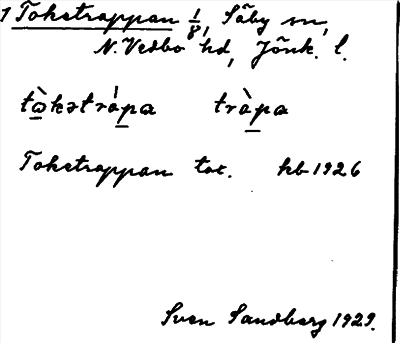 1 Tokstrappan 1/8, Säby sn,
N. Vedbo hd, Jönk. l.
tὼkstràpa tràpa
Tokstrappan tor. hb 1926
Sven Sandberg 1929.